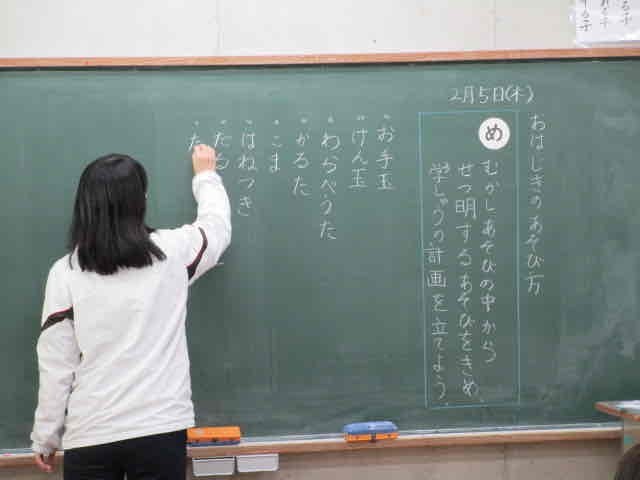 おはじきのあそび方
2月5日(木)
め
むかしあそびの中から
せつ明するあそびをきめ、
学しゅうの計画を立てよう。
・お手玉
・けん玉
・わらべうた
・かるた
・こま
・はねつき